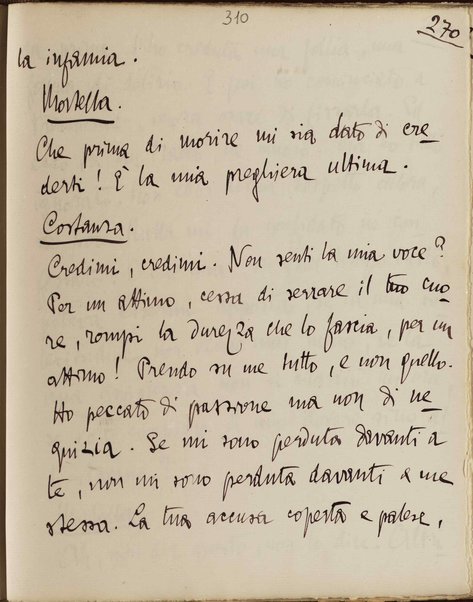 310
270
la infamia.
Mortella.
Che prima di morire mi sia dato di cre-
derti! È la mia preghiera ultima.
Costanza.
Credimi, credimi. Non senti la mia voce?
Per un attimo, cessa di serrare il tuo cuo-
re, rompi la durezza che lo fascia, per un
attimo! Prendo su me tutto, e non quello.
Ho peccato di passione ma non di ne-
quizia. Se mi sono perduta davanti a
te, non mi sono perduta davanti a me
stessa. La tua accusa coperta e palese,